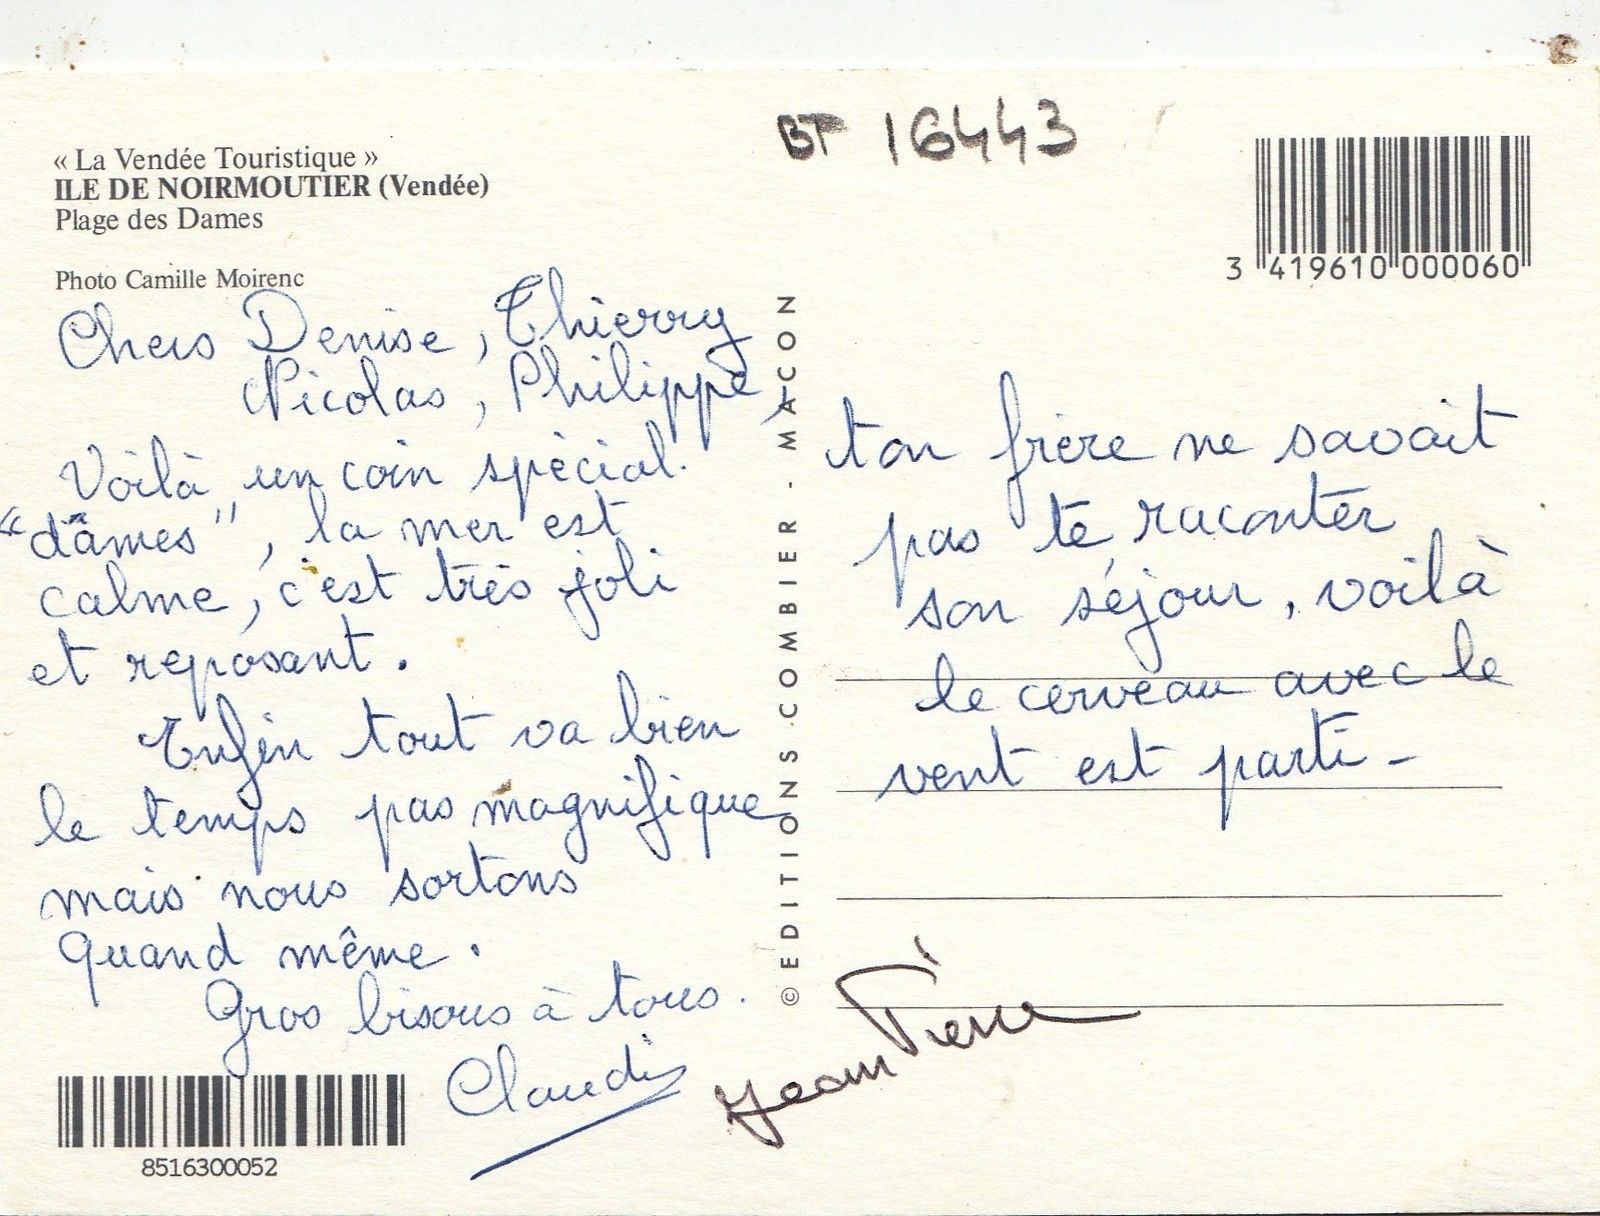 « La Vendée Touristique »
ILE DE NOIRMOUTIER (Vendée)
Plage des Dames
Photo Camille Moirenc
Chers Denise, Thierry
Nicolas, Philippe,
Voilà un coin spécial
"dâmes", la mer est
calme, c'est très joli
et reposant.
Enfin tout va bien
le temps pas magnifique
mais nous sortons
quand même.
Gros bisous à tous.
Claudis
© EDITIONS COMBIER - MACON
BF 16443
3 419610 000060
ton frère ne savait
pas te raconter
son séjour, voilà
le cerveau avec le
vent est parti -
Jean Pierre
8516300052